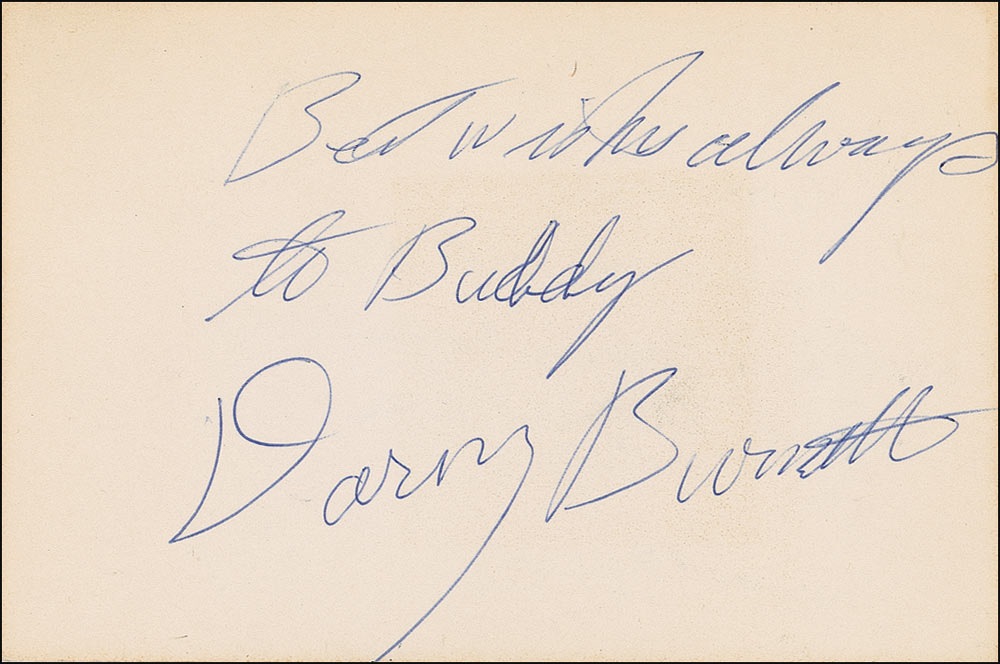 Best wishes always
to Buddy
Dorsey Burnette